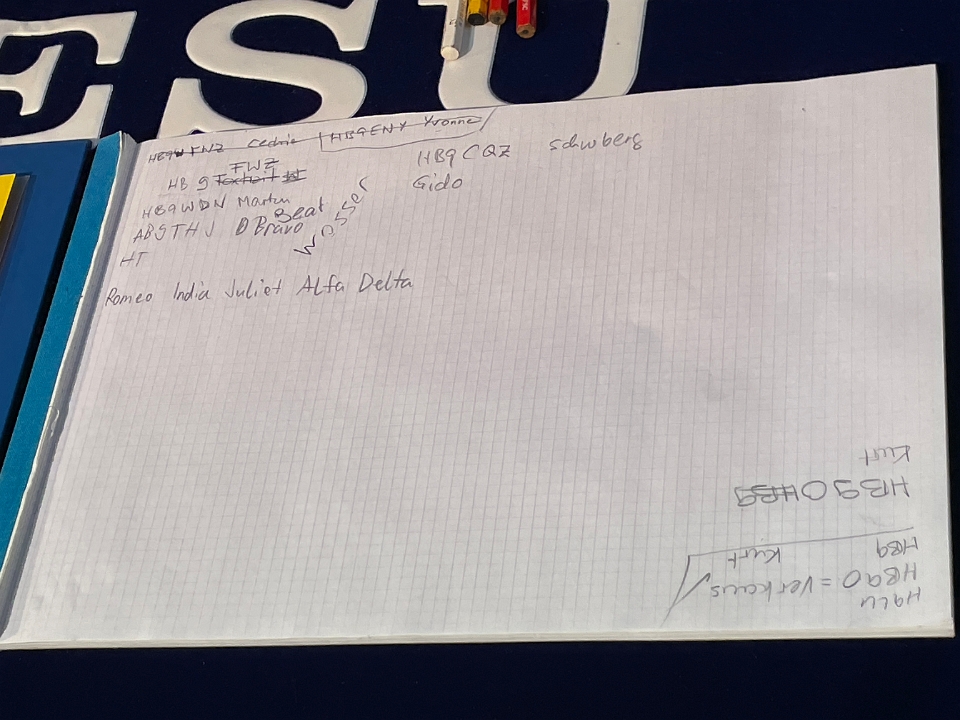 ESU
FNZ Cedric HB9ENY Yvonne
FWZ
HB9
HB9CQZ Schwberg
Gido
HB9WDN Martin
Beat
AB9THJ D Bravo
Wasser
HT
Romeo India Juliet Alfa Delta
Kurt
HB9O HB9
HB9 Kurt
HB9O = Verkaus